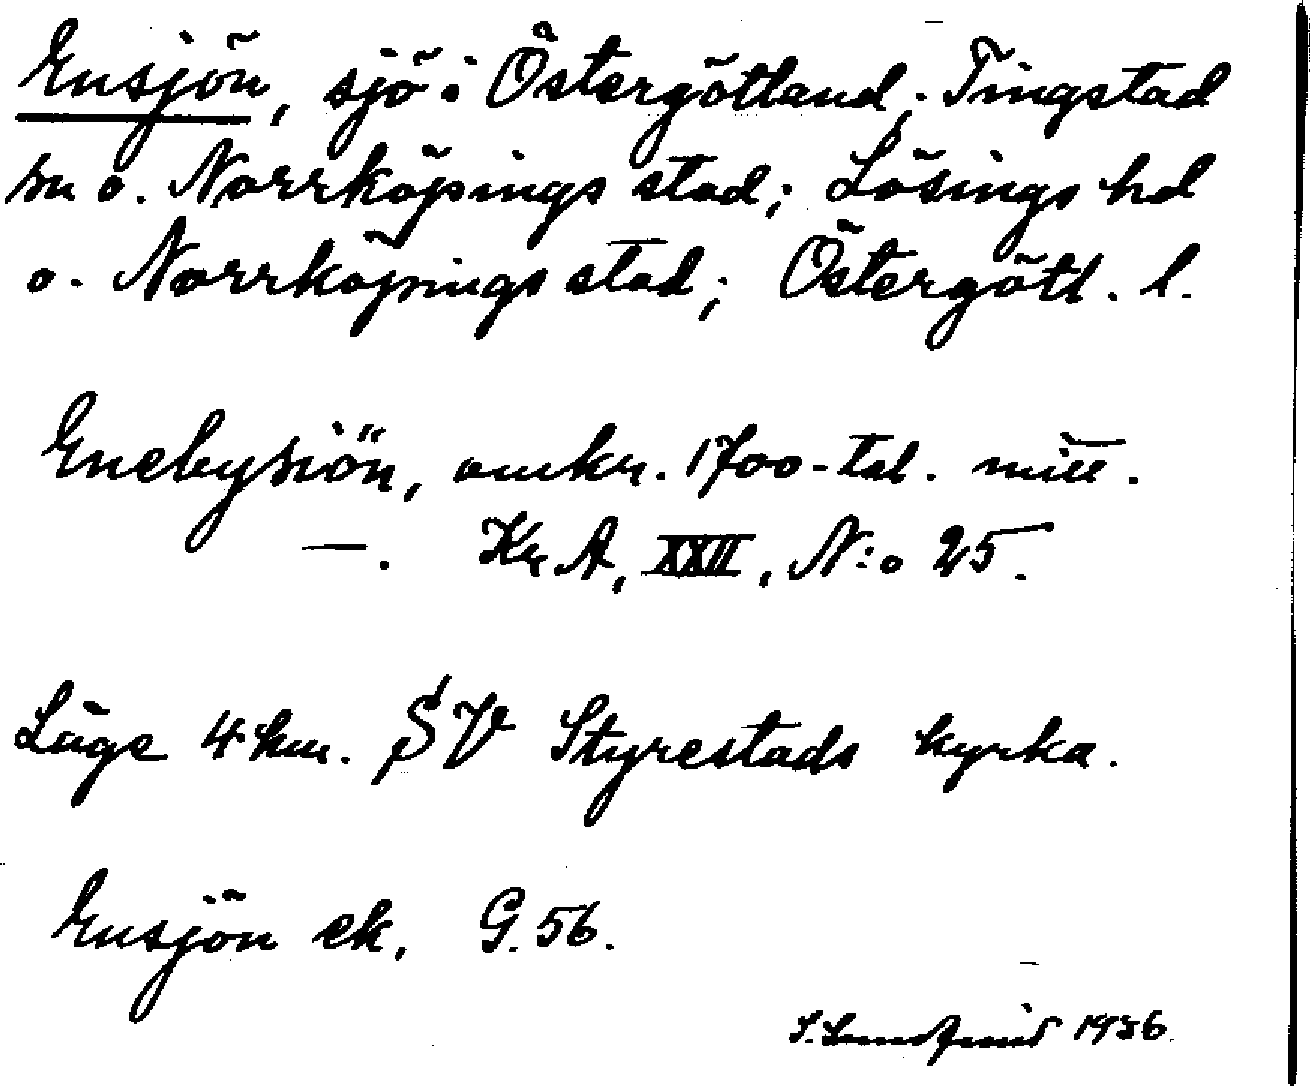 Ensjön, sjö i Östergötland; Tingstad
sn o. Norrköpings stad; Lösings hd
o. Norrköpings stad; Östergötl. l.
Enebysiön, omkr. 1700-tal. mitt.
—. Kr. A, XXII, N:o 25.
Läge 4 km. SV Styrestads kyrka.
Ensjön ek. G. 56.
1936